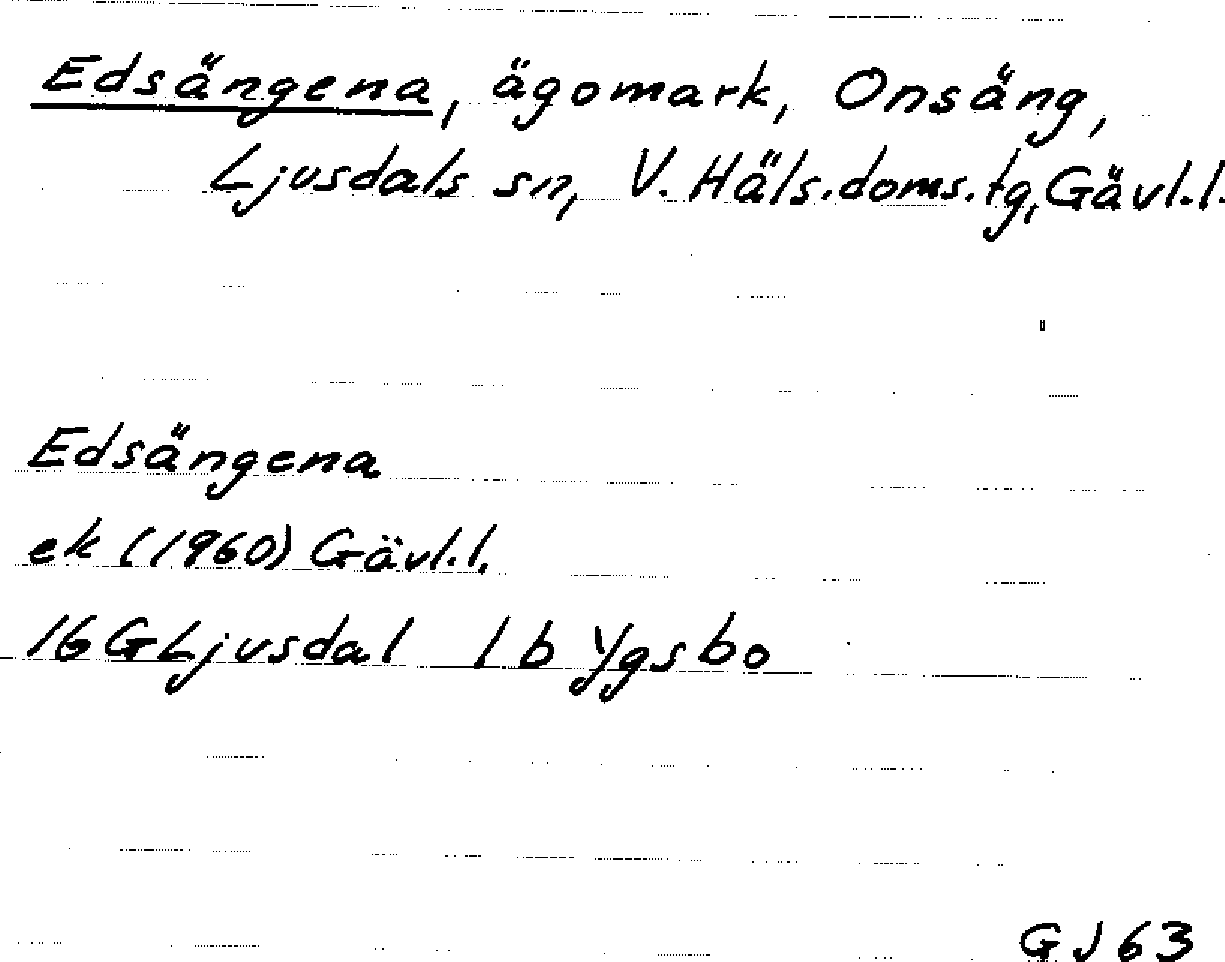 Edsängena, ägomark, Onsäng,
Ljusdals sn, V. Häls.doms.tg, Gävl.l.
Edsängena
ek (1960) Gävl.l.
16GLjusdal 1 b Ygsbo
GJ63